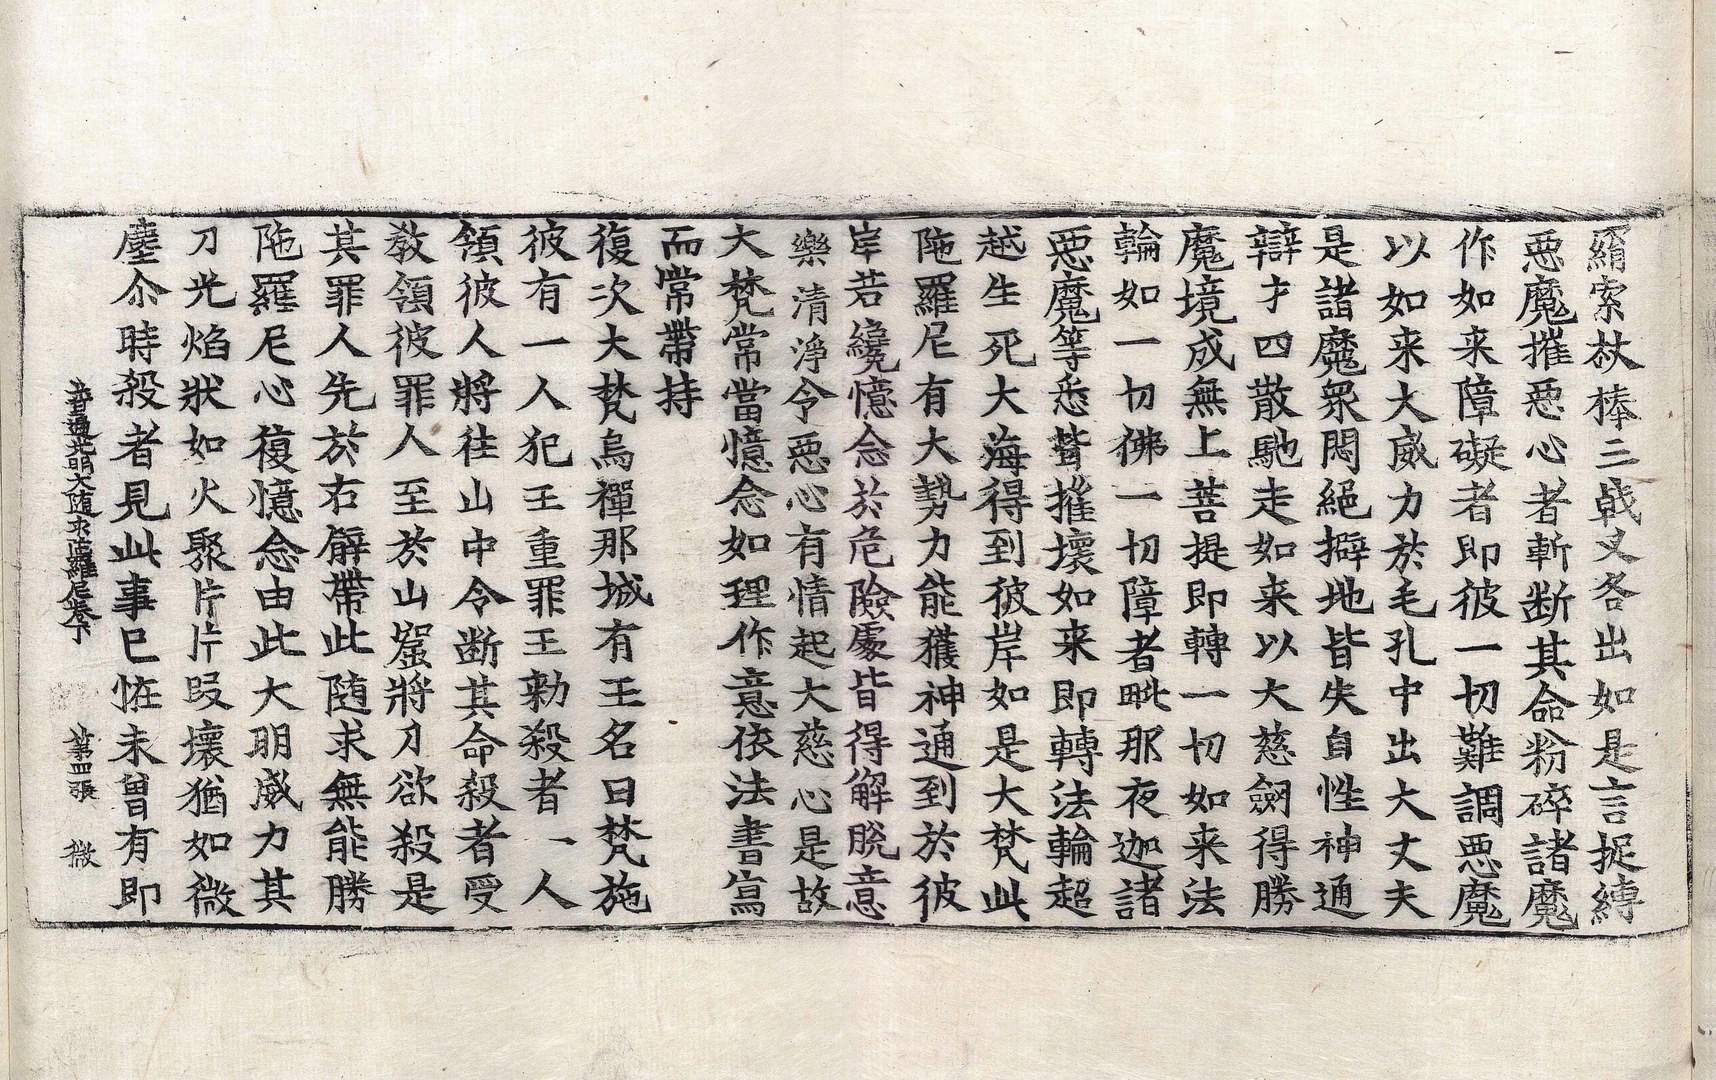 羂索杖棒三戟叉各出如是言捉縛
惡魔摧惡心者斬断其命粉碎諸魔
作如来障礙者即彼一切難調惡魔
以如来大威力於毛孔中出大丈夫
是諸魔衆悶絕擗地皆失自性神通
辯才四散馳走如来以大慈劒得勝
魔境成無上菩提即轉一切如来法
輪如一切佛一切障者毗那夜迦諸
惡魔等悉皆摧壞如来即轉法輪超
越生死大海得到彼岸如是大梵此
陁羅尼有大勢力能獲神通到於彼
岸若纔憶念於危險處皆得解脫意
樂清淨令惡心有情起大慈心是故
大梵常當憶念如理作意依法書寫
而常帶持
復次大梵烏禪那城有王名曰梵施
彼有一人犯王重罪王勑殺者一人
領彼人將往山中令断其命殺者受
教領彼罪人至於山窟將刀欲殺是
其罪人先於右臂帶此隨求無能勝
陁羅尼心復憶念由此大明威力其
刀光焰狀如火聚片片段壞猶如微
塵尒時殺者見此事已恠未曾有即
普遍光明大隨求陁羅尼卷下 第四張 微